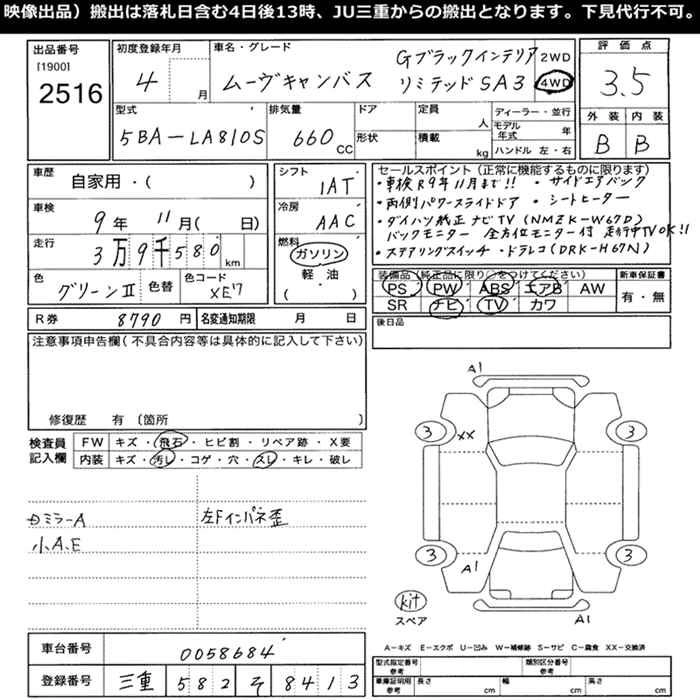 映像出品）搬出は落札日含む4日後13時、JU三重からの搬出となります。下見代行不可。
出品番号
[1900]
2516
初度登録年月
4 月
車名・グレード
ムーヴキャンバス
Gブラックインテリア
リミテッドSA3
2WD
4WD
評価点
3.5
外装 内装
B B
型式
5BA-LA810S
排気量
660 CC
ドア
形状
定員 人
積載 kg
ディーラー・並行
モデル年式 年
ハンドル 左・右
車歴
自家用・( )
車検
9年 11月( 日)
走行
3万9千580km
色
グリーンⅡ
色替
色コード
XE7
シフト
1AT
冷房
AAC
燃料
ガソリン
軽・油
( )
セールスポイント（正常に機能するものに限ります）
・車検R9年11月まで!! ・サイドエアバック
・両側パワースライドドア ・シートヒーター
・ダイハツ純正ナビTV (NMZK-W67D)
バックモニター 全方位モニター付 走行中TVOK!!
・ステアリングスイッチ ・ドラレコ(DRK-H67N)
装備品（純正品に限り○をつけてください）
PS PW ABS エアB AW
SR ナビ TV カワ
新車保証書
有・無
R券 8790円
名変通知期限 月 日
後日品
注意事項申告欄（不具合内容等は具体的に記入して下さい）
修復歴 有〔箇所 〕
検査員
記入欄
FW キズ・飛石・ヒビ割・リペア跡・X要
内装 キズ・汚レ・コゲ・穴・スレ・キレ・破レ
ミラーA
小A.E
左Fインパネ歪
A1
3
XX
3
3
3
A1
A1
kit
スペア
A-キズ E-エクボ U-凹み W-補修跡 S-サビ C-腐食 XX-交換済
車台番号
0058684
登録番号
三重 582 そ 8413
型式指定番号
参考
類別区分番号
参考
車庫証明用
参考
長さ cm
幅 cm
高さ cm